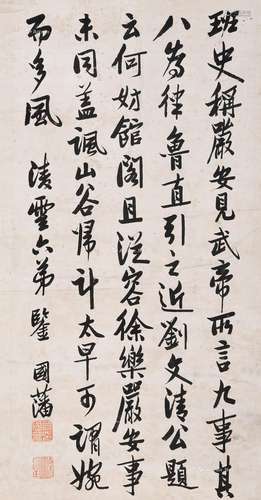 班史稱嚴安見武帝所言九事其
八為律魯直引之近劉文清公題
云何妨館閣且從容徐樂嚴安事
未同蓋諷山谷歸計太早可謂婉
而多風 凌雲六弟鑒 國藩